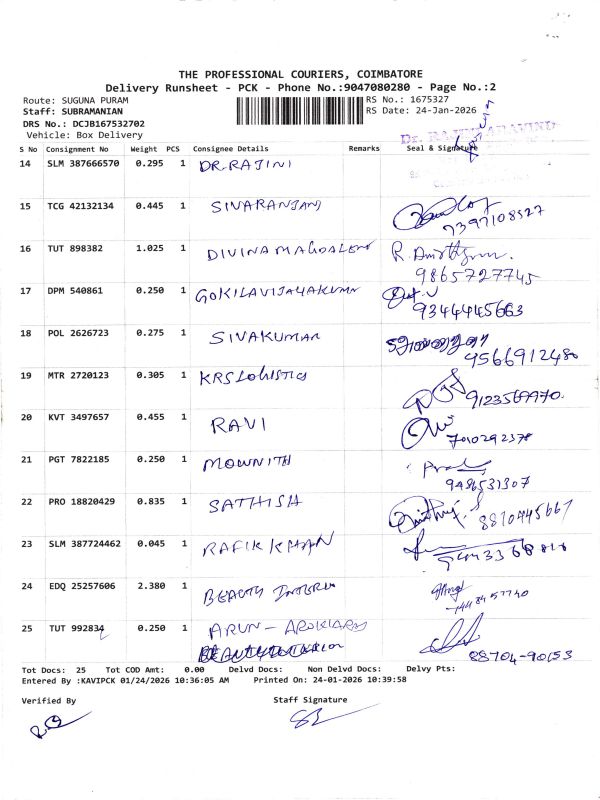 THE PROFESSIONAL COURIERS, COIMBATORE
Delivery Runsheet - PCK - Phone No.:9047080280 - Page No.:2
Route: SUGUNA PURAM RS No.: 1675327
Staff: SUBRAMANIAN RS Date: 24-Jan-2026
DRS No.: DCJB167532702
Vehicle: Box Delivery
S No Consignment No Weight PCS Consignee Details Remarks Seal & Signature
14 SLM 387666570 0.295 1 DR.RAJINI
15 TCG 42132134 0.445 1 SIVARANJANJ
7397108527
16 TUT 898382 1.025 1 DIVINA MAGDALENE
9865727745
17 DPM 540861 0.250 1 GOKILAVIJAYAKUMAR
9344445663
18 POL 2626723 0.275 1 SIVAKUMAR
9566912480
19 MTR 2720123 0.305 1 KRS LOGISTICS
9123569970.
20 KVT 3497657 0.455 1 RAVI
7010292378
21 PGT 7822185 0.250 1 MOWNITH
9486531307
22 PRO 18820429 0.835 1 SATHISH
8870445667
23 SLM 387724462 0.045 1 RAFIK KHAN
24 EDQ 25257606 2.380 1 BEAUTY
25 TUT 992834 0.250 1 ARUN -
88704-90153
Tot Docs: 25 Tot COD Amt: 0.00 Delvd Docs: Non Delvd Docs: Delvy Pts:
Entered By :KAVIPCK 01/24/2026 10:36:05 AM Printed On: 24-01-2026 10:39:58
Verified By Staff Signature